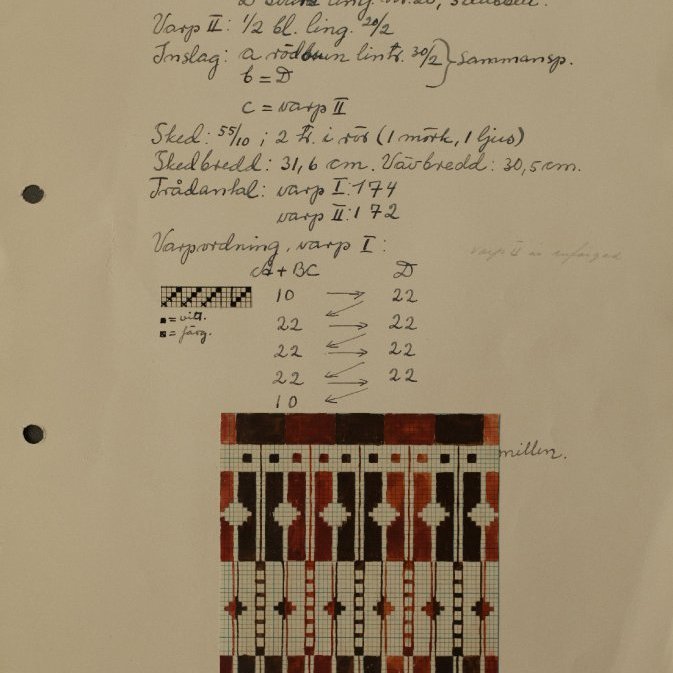 Varp II: 1/2 bl. ling. 20/2
Inslag: a rödbrun lintr. 30/2 } Sammansp.
b = D
c = varp II
Sked: 55/10; 2 tr. i rör (1 mörk, 1 ljus)
Skedbredd: 31,6 cm. Vävbredd: 30,5 cm.
Trådantal: varp I: 174
varp II: 172
Varpordning, varp I:
varp II är enfärgad
A + BC D
10 → 22
22 → 22
22 → 22
22 → 22
10
= vitt.
= färg.